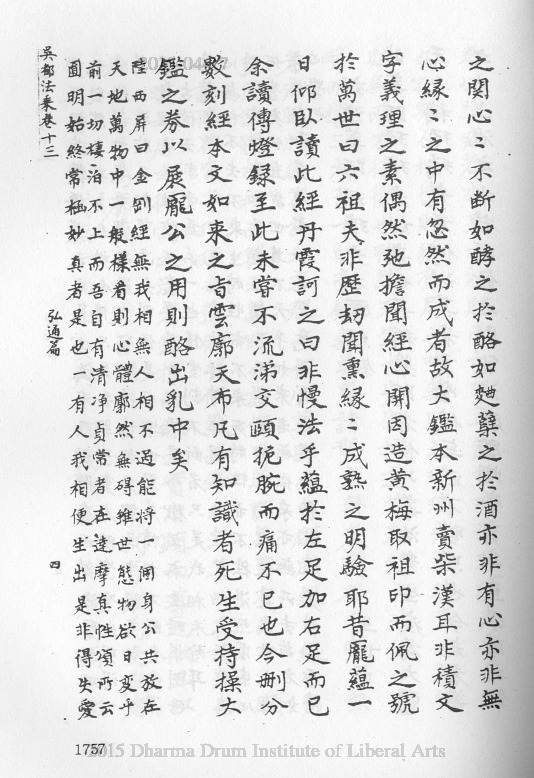 之関心〻不断如酵之於酪如麯蘖之於酒亦非有心亦非無
心縁〻之中有忽然而成者故大鑑本新州賣柴漢耳非積文
字義理之素偶然弛擔聞經心開因造黄梅取祖印而佩之號
於萬世曰六祖夫非歴劫聞熏縁〻成熟之明驗耶昔龐蘊一
日仰臥讀此經丹霞訶之曰非慢法乎蘊於左足加右足而已
余讀傳燈録至此未甞不流涕交頤扼腕而痛不已也今刪分
數刻經本文如來之旨雲廓天布凡有知識者死生受持操大
鑑之券以展龐公之用則酪出乳中矣
陸西屏曰金剛經無我相無人相不過能將一箇身公共放在
天地萬物中一般樣看則心體廓然無碍維世態物欲日變乎
前一切棲泊不上而吾自有清净貞常者在達摩真性頌所云
圓明始終常極妙真者是也一有人我相便生出是非得失愛
吳都法乗卷十三
弘通篇
四
1757
2015 Dharma Drum Institute of Liberal Arts